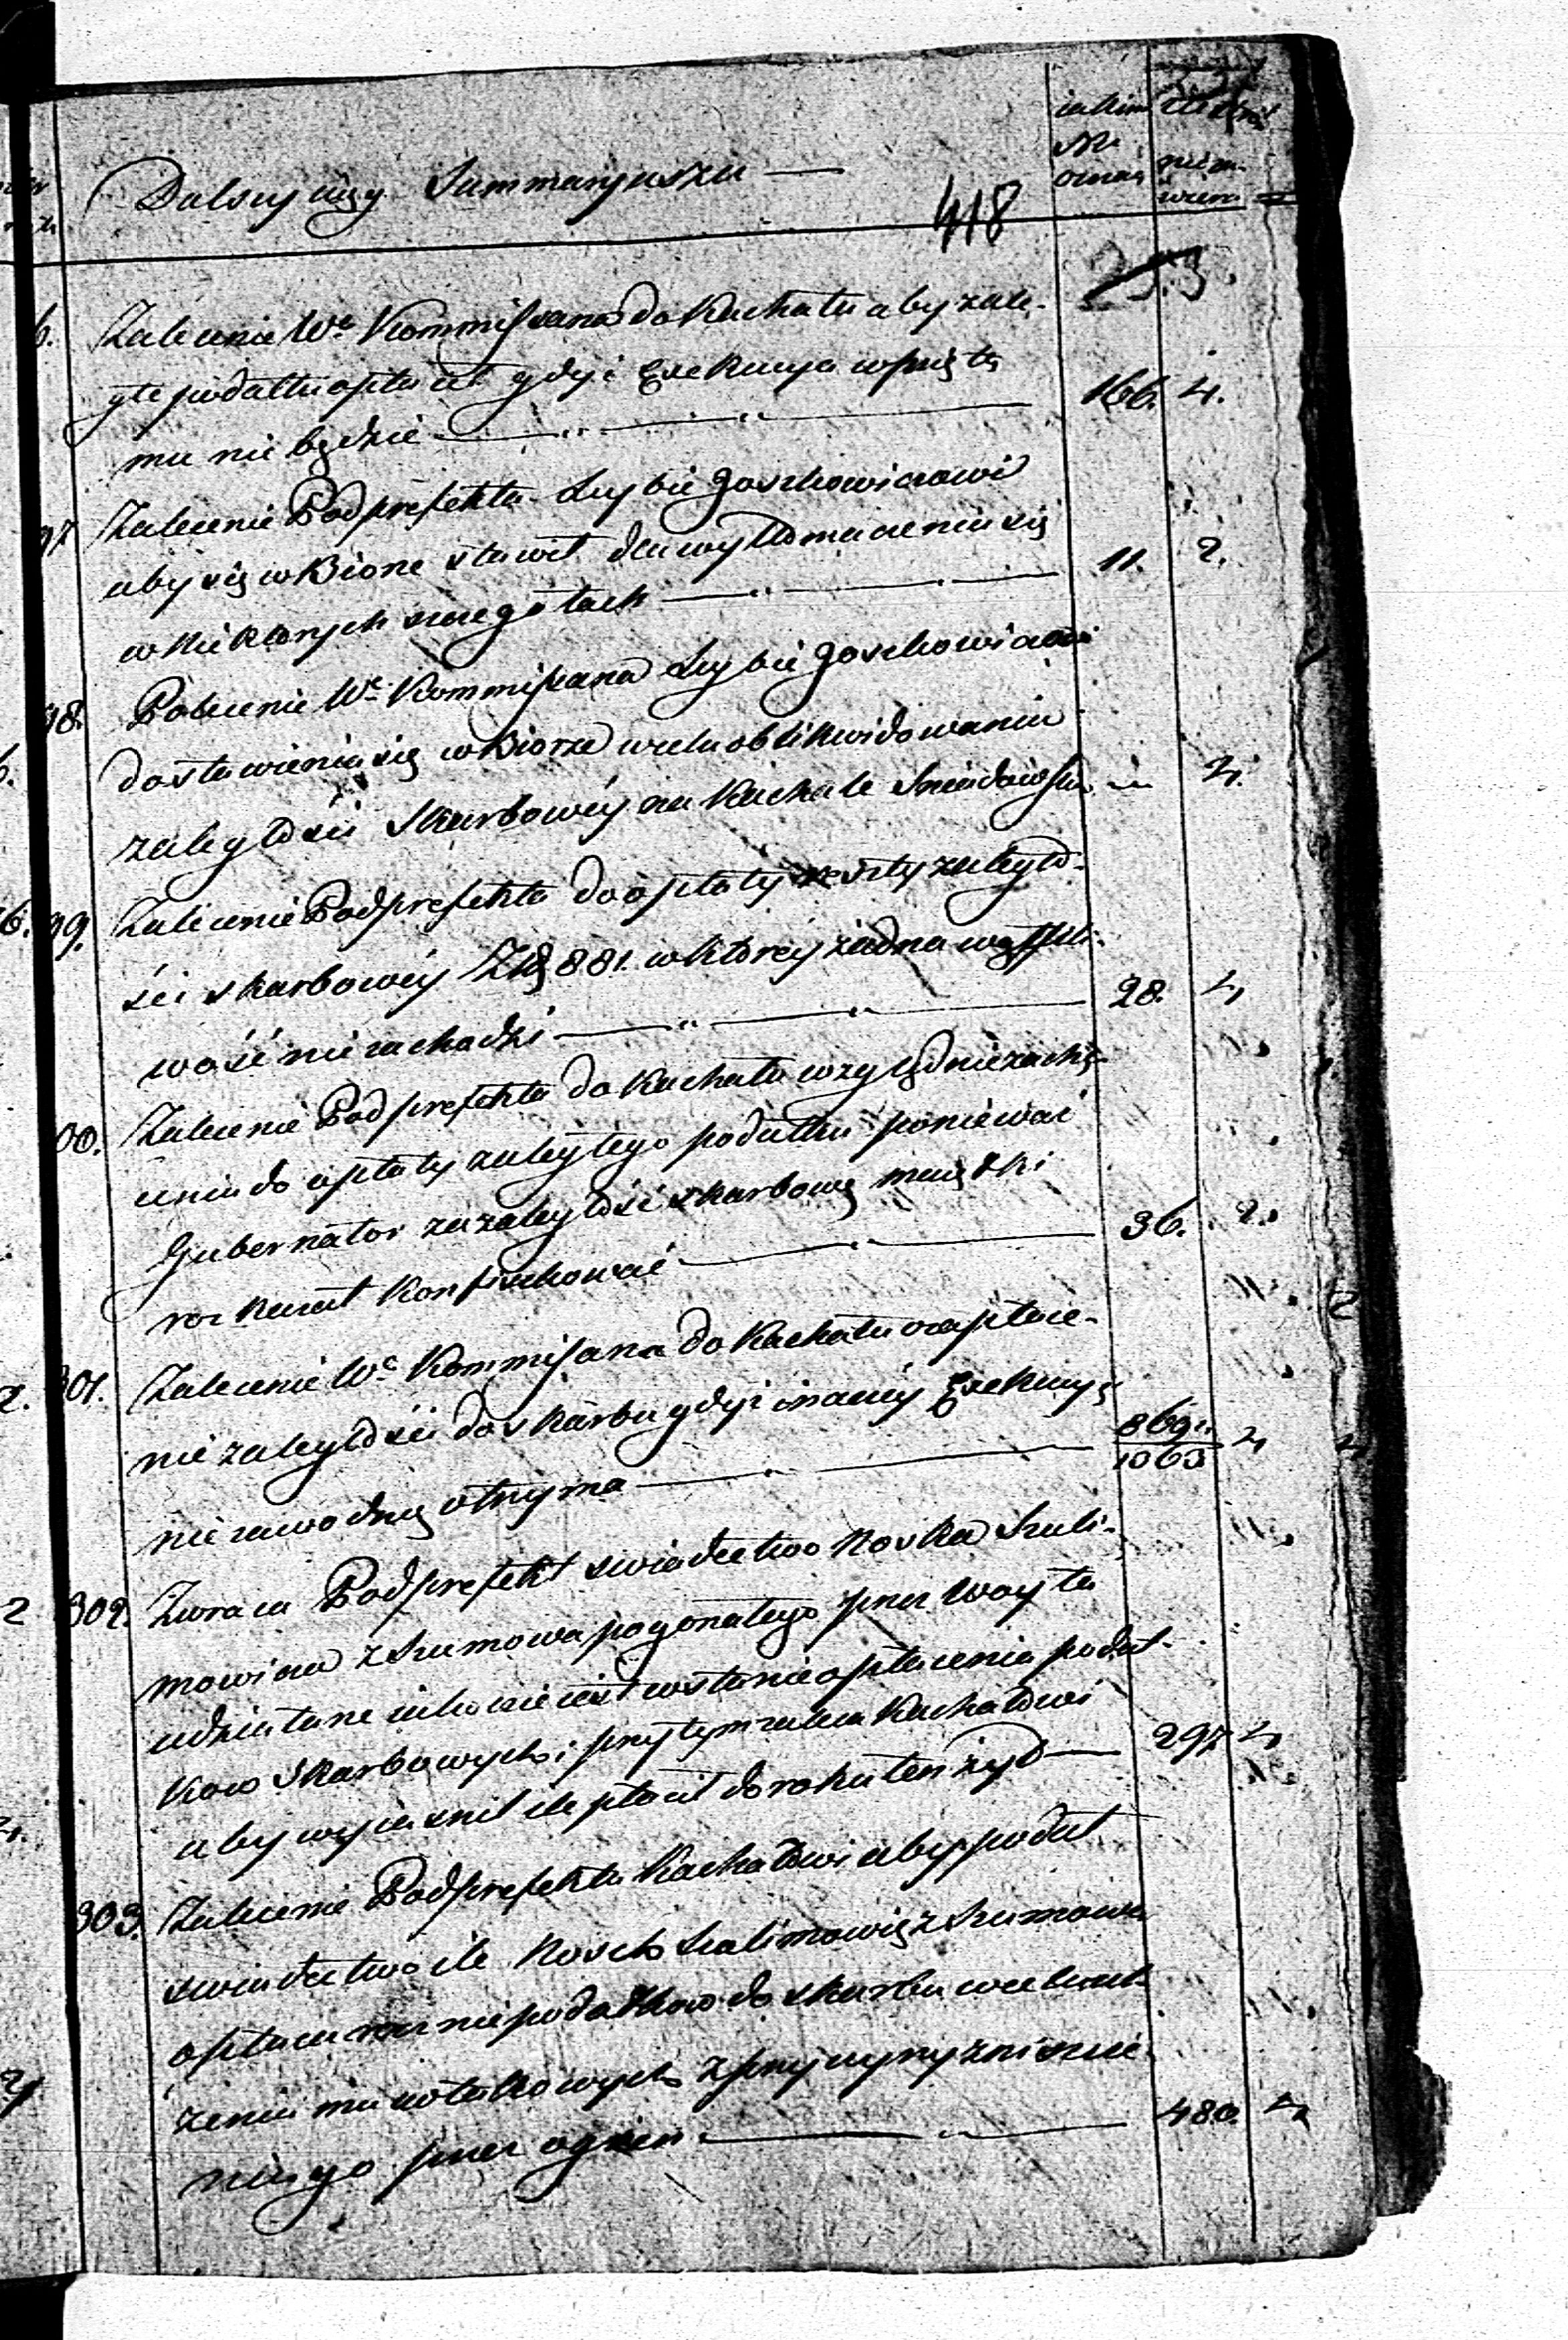 Dalszy ciąg Summaryuszu —
jakim
Nr
oznaś
418
253.
6. Zalecenie We Kommissarza do Kachału aby zale-
głe podatki opłacił gdyż Exekucya wpiętą
mu nie będzie 166. 4.
97 Zalecenie Podprefekta Leybie Joszkowiczowi
aby się w Biorze stawił dla wytłomaczenia się
w niektórych szczegółach 11. 2.
98. Polecenie We Kommissarza Leybie Joszkowiczowi
do stawienia się w Biorze w celu oblikwidowania
zaległości Skarbowéy na Kachale Sniadowskim 4.
99. Zalecenie Podprefekta do opłaty reszty zaległo-
ści skarbowéy Złp 881. w ktoréy żadna wątpli-
wość nie zachodzi 28. 4
00. Zalecenie Podprefekta do Kachału względnie zachę-
cenia do opłaty zaległego podatku ponieważ
Gubernator za zaległość skarbową maiątki
rozkazał konfiskować 36. 2.
301. Zalecenie We Kommisarza do Kachału o opłace-
nie zaległości do skarbu gdyż inaczéy Exekucyą
niezawodną otrzyma 869. 4
1063
302. Zwraca Podprefekt swiadectwo Noska Szuli-
mowicza z Szumowa pogorzałego przez Woyta
udzielane jako nie iest w stanie opłacenia podat-
kow Skarbowych i przytym zaleca Kachałowi
aby wyiasnił ile płacił do roku ten żyd 297 4
303. Zalecenie Podprefekta Kachałowi aby podał
swiadectwo ile Nosek Szulimowicz z Szumowa
opłaca rocznie podatkow do skarbu w celu
zenia mu takowych z przyczyny zniszcze-
nia go przez ogień 480. 4